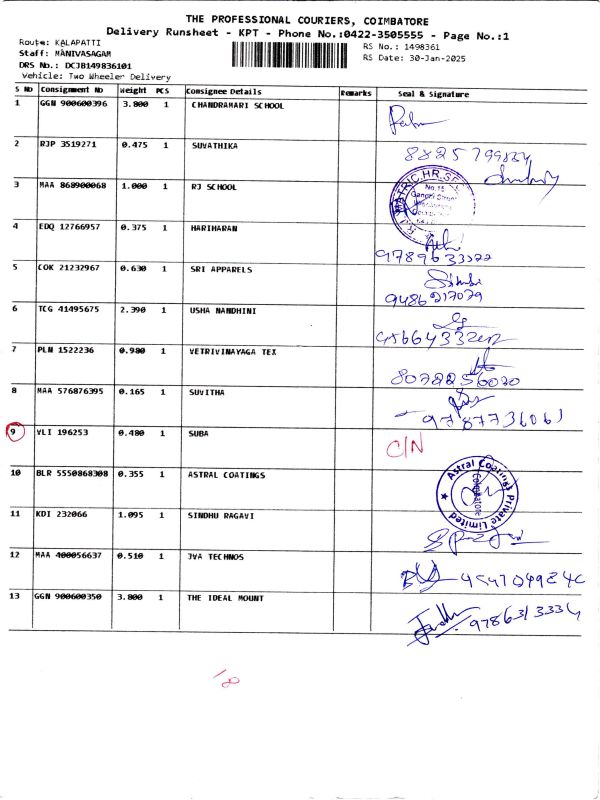 THE PROFESSIONAL COURIERS, COIMBATORE
Delivery Runsheet - KPT - Phone No.:0422-3505555 - Page No.:1
Route: KALAPATTI
RS No.: 1498361
Staff: MANIVASAGAM
RS Date: 30-Jan-2025
DRS No.: DCJB149836101
Vehicle: Two Wheeler Delivery
S No Consignment No Weight PCS Consignee Details Remarks Seal & Signature
1 GGN 900600396 3.800 1 CHANDRAMARI SCHOOL
2 RJP 3519271 0.475 1 SUVATHIKA
3 MAA 868900068 1.000 1 RJ SCHOOL
MATRIC.HR.SE
No.15
Gandhi Street
4 EDQ 12766957 0.375 1 HARIHARAN
9789633322
5 COK 21232967 0.630 1 SRI APPARELS
9486217079
6 TCG 41495675 2.390 1 USHA NANDHINI
7 PLN 1522236 0.980 1 VETRIVINAYAGA TEX
8072256020
8 MAA 576876395 0.165 1 SUVITHA
9787736061
9 VLI 196253 0.480 1 SUBA C/N
10 BLR 5550868308 0.355 1 ASTRAL COATINGS
Astral Coatings Private Limited
Coimbatore
11 KDI 232066 1.095 1 SINDHU RAGAVI
12 MAA 400056637 0.510 1 JVA TECHNOS
13 GGN 900600350 3.800 1 THE IDEAL MOUNT
9786313334